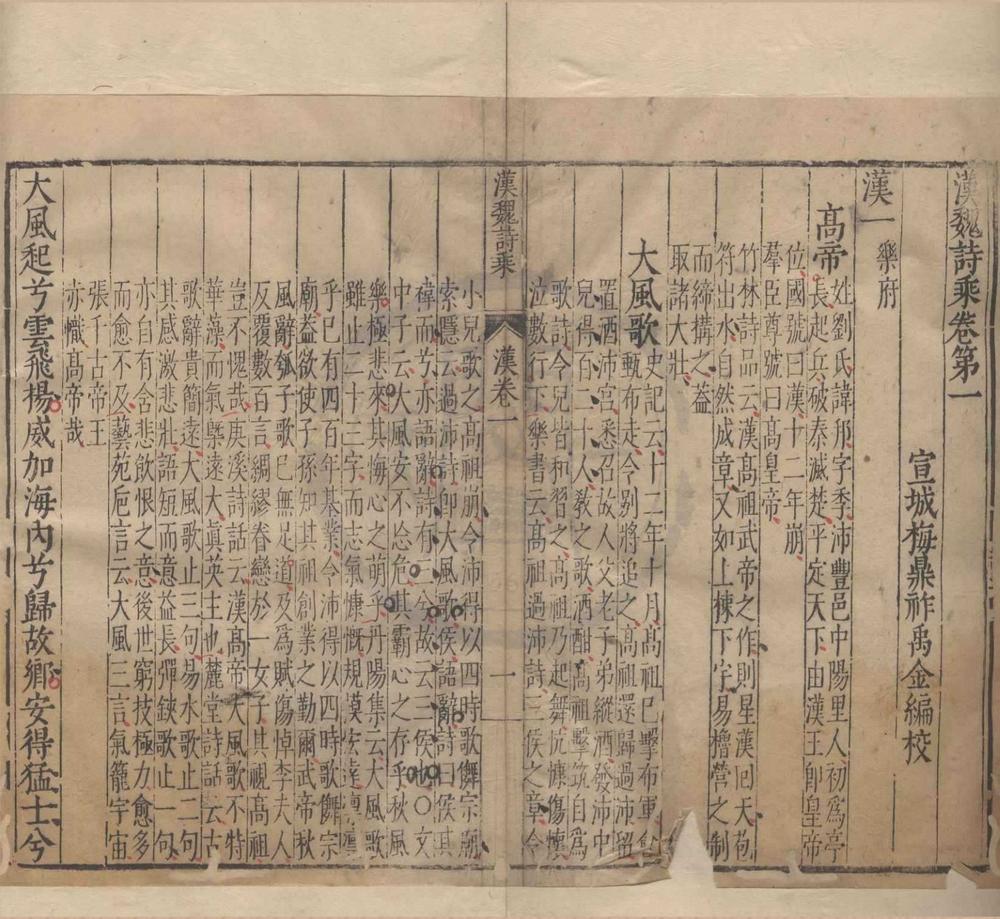 漢魏詩乘卷第一
宣城梅鼎祚禹金編校
漢一 樂府
高帝 姓劉氏諱邦字季沛豐邑中陽里人初爲亭
長起兵破秦滅楚平定天下由漢王卽皇帝
位國號曰漢十二年崩
羣臣尊號曰高皇帝
竹林詩品云漢高祖武帝之作則星漢囘天苞
符出水自然成章又如上棟下宇易櫓營之制
而締搆之蓋
取諸大壯
大風歌 史記云十二年十月高祖已擊布軍會
甀布走令別將追之高祖還歸過沛留
置酒沛宮悉召故人父老子弟縱酒發沛中
兒得百二十人敎之歌酒酣高祖擊筑自爲
歌詩令兒皆和習之高祖乃起舞忼慷傷懷
泣數行下樂書云高祖過沛詩三侯之章令
漢魏詩乘 漢卷一 一
小兒歌之高祖崩令沛得以四時歌儛宗廟
索隱云過沛詩卽大風歌侯語辭詩曰侯其
禕而兮亦語辭詩有三兮故云三侯也○文
中子云大風安不忘危其霸心之存乎秋風
樂極悲來其悔心之萌乎丹陽集云大風歌
雖止二十三字而志氣慷慨規模宏遠凛凛
乎已有四百年基業令沛得以四時歌儛宗
廟蓋欲使子孫知其祖創業之勤爾武帝秋
風辭瓠子歌已無足道及爲賦傷悼李夫人
反覆數百言綢繆眷戀於一女子其視高祖
豈不愧哉庚溪詩話云漢高帝大風歌不特
華藻而氣槩遠大眞英主也麓堂詩話云古
歌辭貴簡遠大風歌止三句易水歌止二句
其感激悲壯語短而意益長彈鋏歌止一句
亦自有含悲飲恨之意後世窮技極力愈多
而愈不及藝苑巵言云大風三言氣籠宇宙
張千古帝王
赤幟高帝哉
大風起兮雲飛揚威加海內兮歸故鄉安得猛士兮